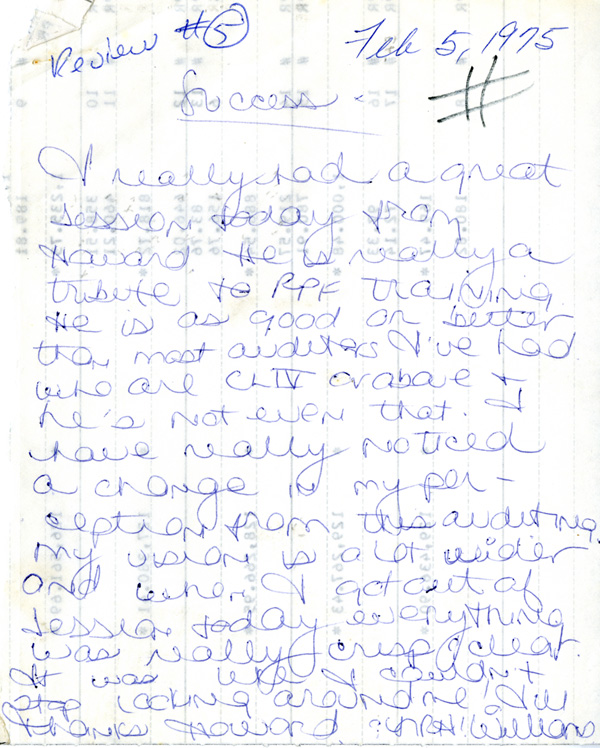 Review #5
Feb 5, 1975
#
Success -
I really had a great
session today from
Howard. He is really a
tribute to RPF Training
He is as good or better
than most auditors I've had
who are CLIV or above &
he's not even that. I
have really noticed
a change in my per -
ception from this auditing.
my vision is a lot wider
and when I got out of
session today everything
was really crisp & clear.
It was like I couldn't
stop looking around me,
Thanks Howard
Williams